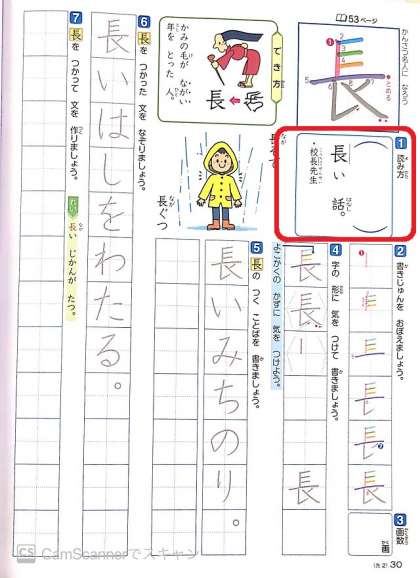 かんさつ名人に なろう
53ページ
長
1
2
3
4
5
とめる
でき方
かみの毛が ながい
年を とった 人。
長
1 読み方
長い 話。
・校長先生
長そで
長ぐつ
2 書きじゅんを おぼえましょう。
長
3 画数
画
4 字の 形に 気を つけて 書きましょう。
よこかくの かずに 気を つけよう。
長
長
長
5 長の つく ことばを 書きましょう。
長いみちのり。
6 長を つかった 文を なぞりましょう。
長いはしをわたる。
7 長を つかって 文を 作りましょう。
れい 長い じかんが たつ。
(光2) 30
CS CamScannerでスキャン